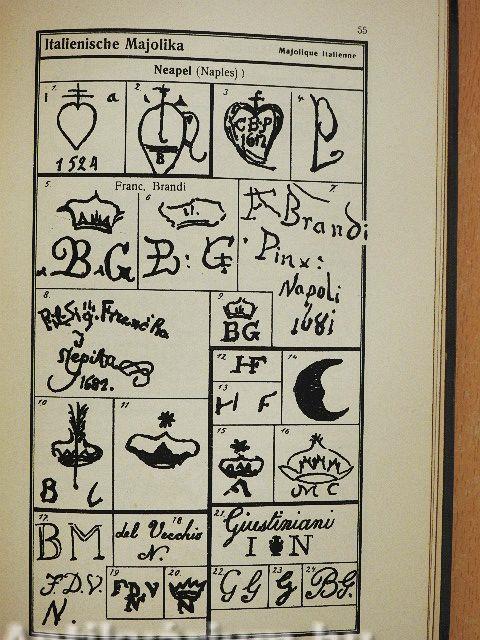 55
Italienische Majolika
Majolique Italienne
Neapel (Naples)
1.
I a
1524
2.
B
3
C B P
4.
5.
Franc. Brandi
B. G
6
B: G
7.
F Brandi
Pinx:
Napoli
1681
8.
1682.
9
BG
10
B
11
12
HF
13
H F
14
15
16
M C
17.
BM
18
del Vecchio
N.
F. D. V.
N.
19
F D V
N
20.
N
21.
Giustiniani
I N
22
G G
23
G
24
B G.